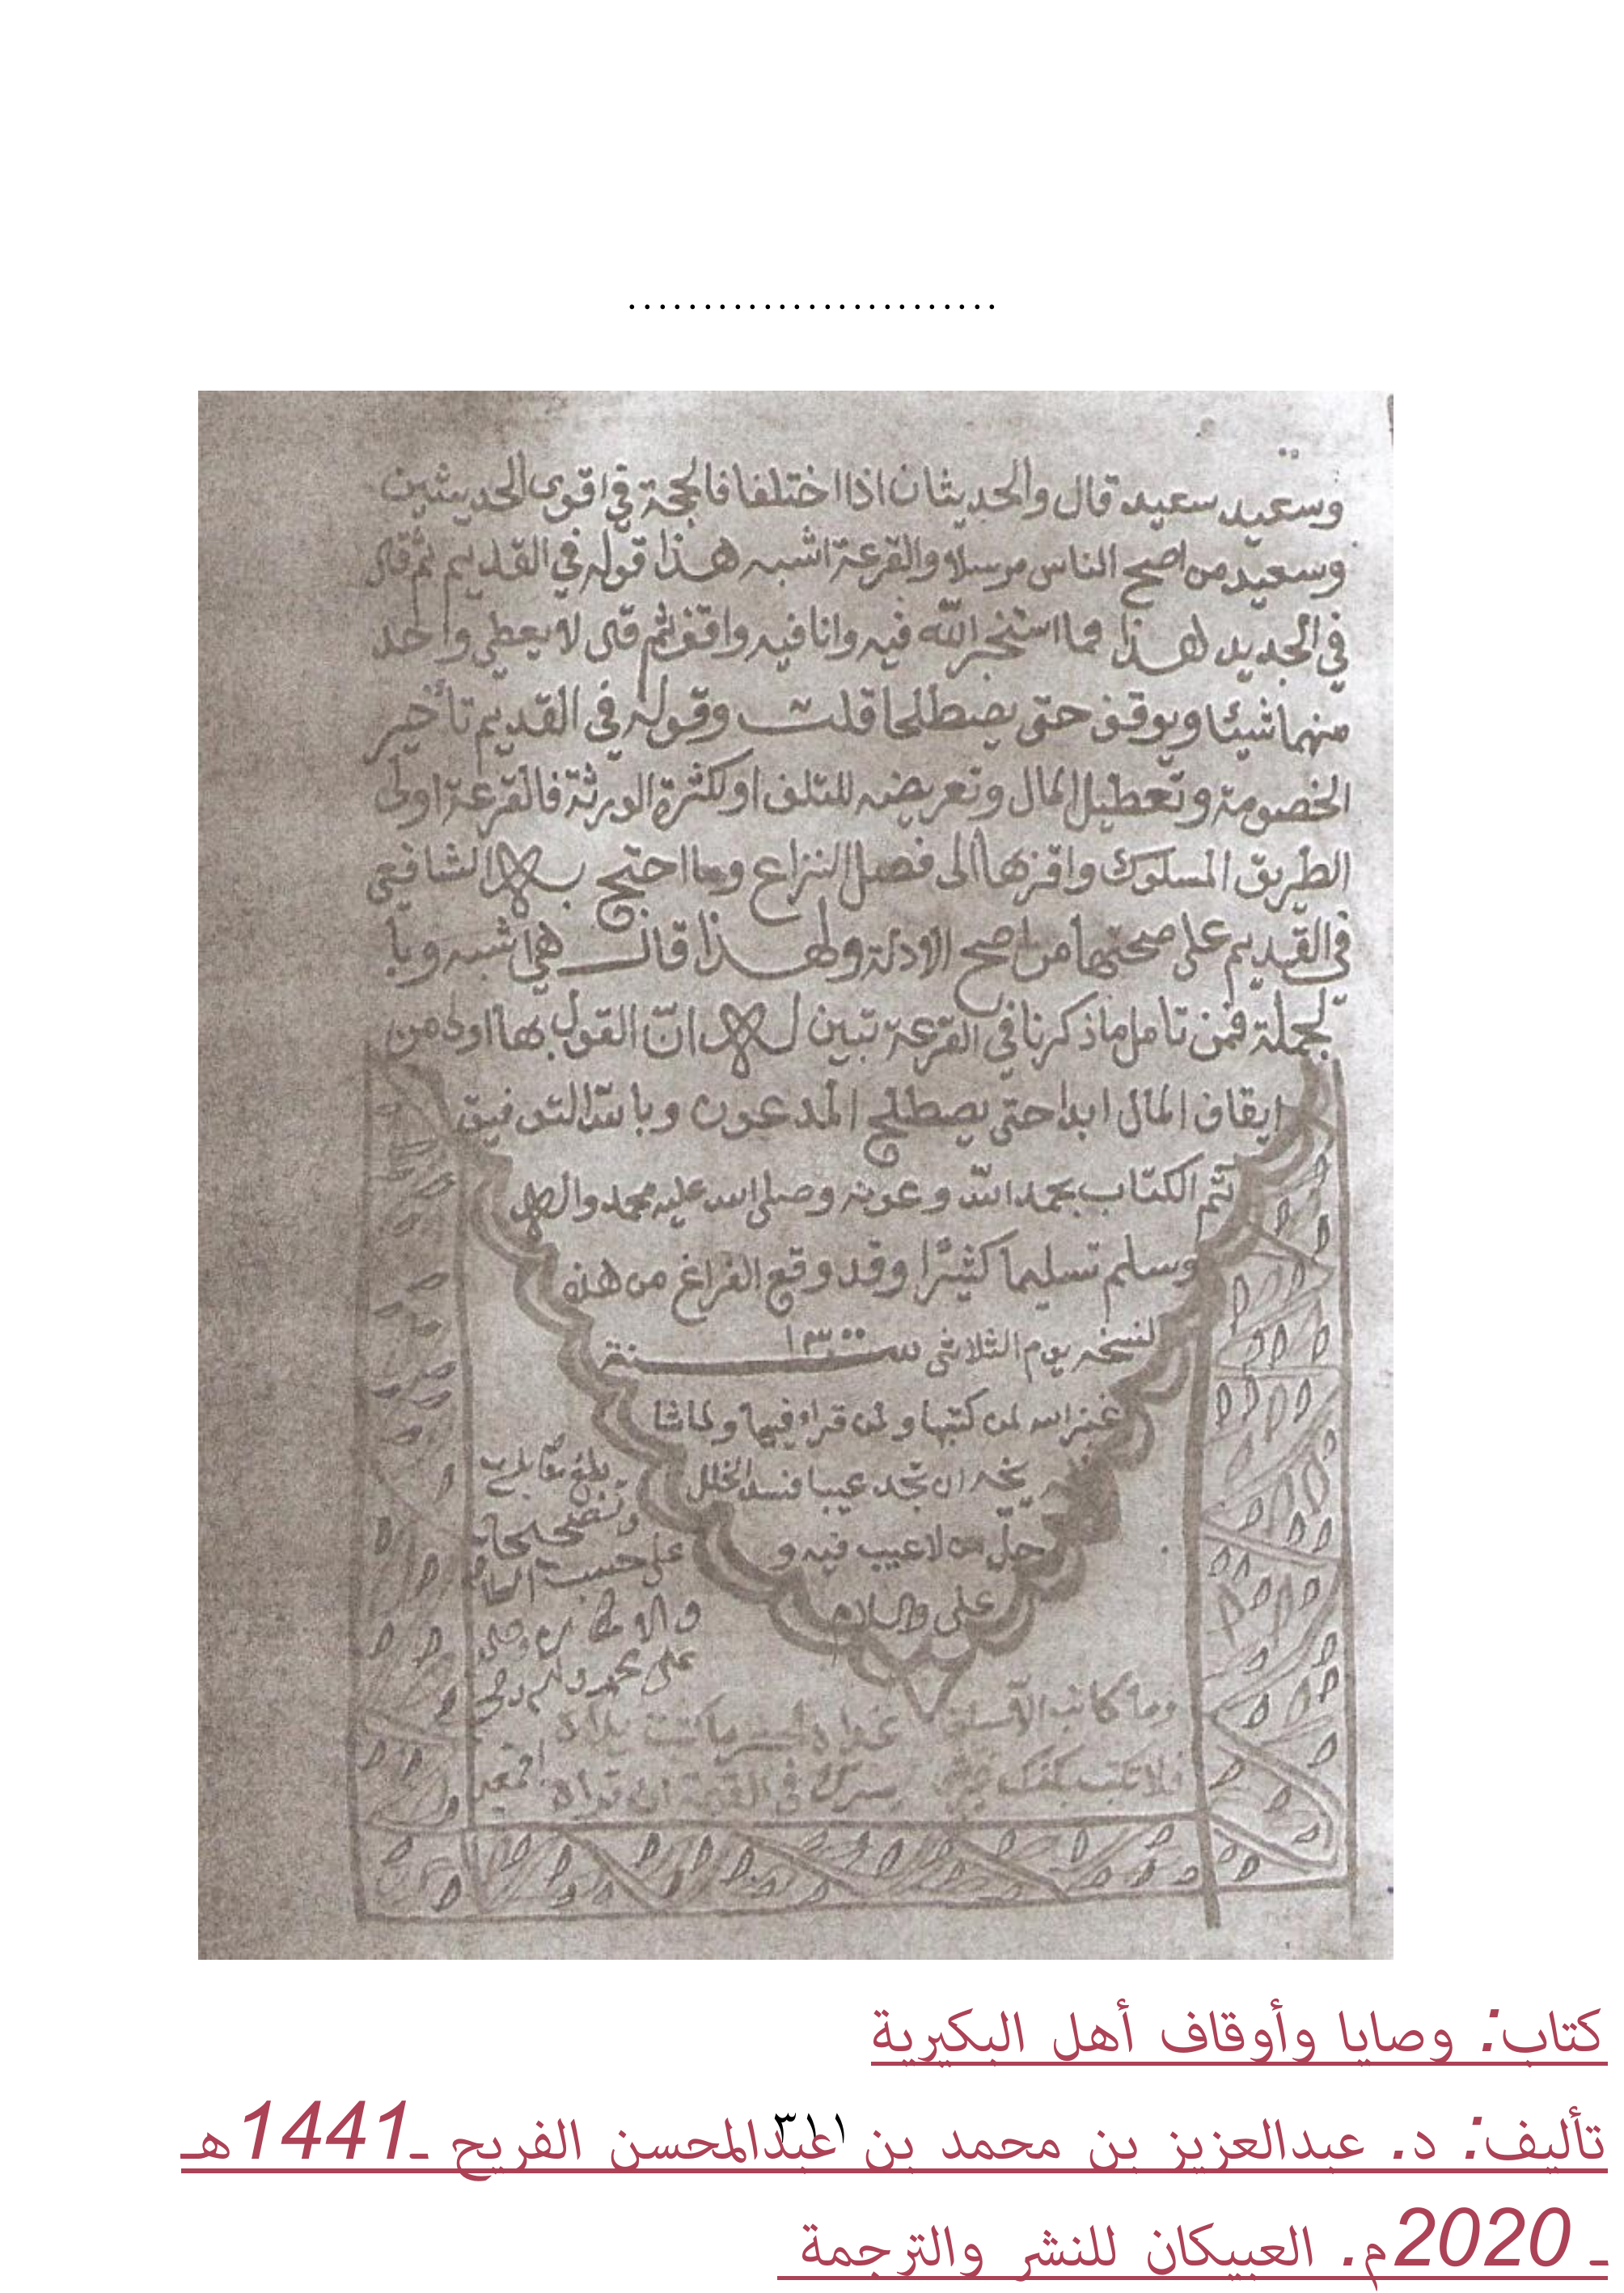 .........................
وسعيد سعيد قال والحديثان اذا اختلفا فالحجة في اقوى الحديثين
وسعيد من اصح الناس مرسلا والقرعة اشبه هذا قوله في القديم ثم قال
في الجديد هذا مما استخير الله فيه وانا فيه واقف ثم قال لا يعطى واحد
منهما شيئا ويوقف حتى يصطلحا قلت وقوله في القديم تأخير
الخصومة وتعطيل المال وتعريضه للتلف او لكثرة الورثة فالقرعة اولى
الطريق المسلوك واقربها الى فصل النزاع وما احتج به الشافعي
في القديم على صحتها من اصح الادلة ولهذا قال هي اشبه وبا
لجملة فمن تامل ما ذكرنا في القرعة تبين له ان القول بها اولى من
ايقاف المال ابدا حتى يصطلح المدعون وبالله التوفيق
تم الكتاب بحمد الله وعونه وصلى الله عليه محمد واله
وسلم تسليما كثيرا وقد وقع الفراغ من هذه
النسخه يوم الثلاثى سنة ١٣٠٠
غفر الله لمن كتبها ولمن قراء فيها
ان تجد عيبا فسد الخلل
جل من لا عيب فيه و
على والسلام
بلغ مقابلة
وتصحيحا
على حسب
والامكان
على محمد
وما كاتب
فلا تكتب بكفك غير
يسرك في القيمة ان تراه
كتاب: وصايا وأوقاف أهل البكيرية
٣١١
تأليف: د. عبدالعزيز بن محمد بن عبدالمحسن الفريح ـ1441هـ
ـ 2020م. العبيكان للنشر والترجمة